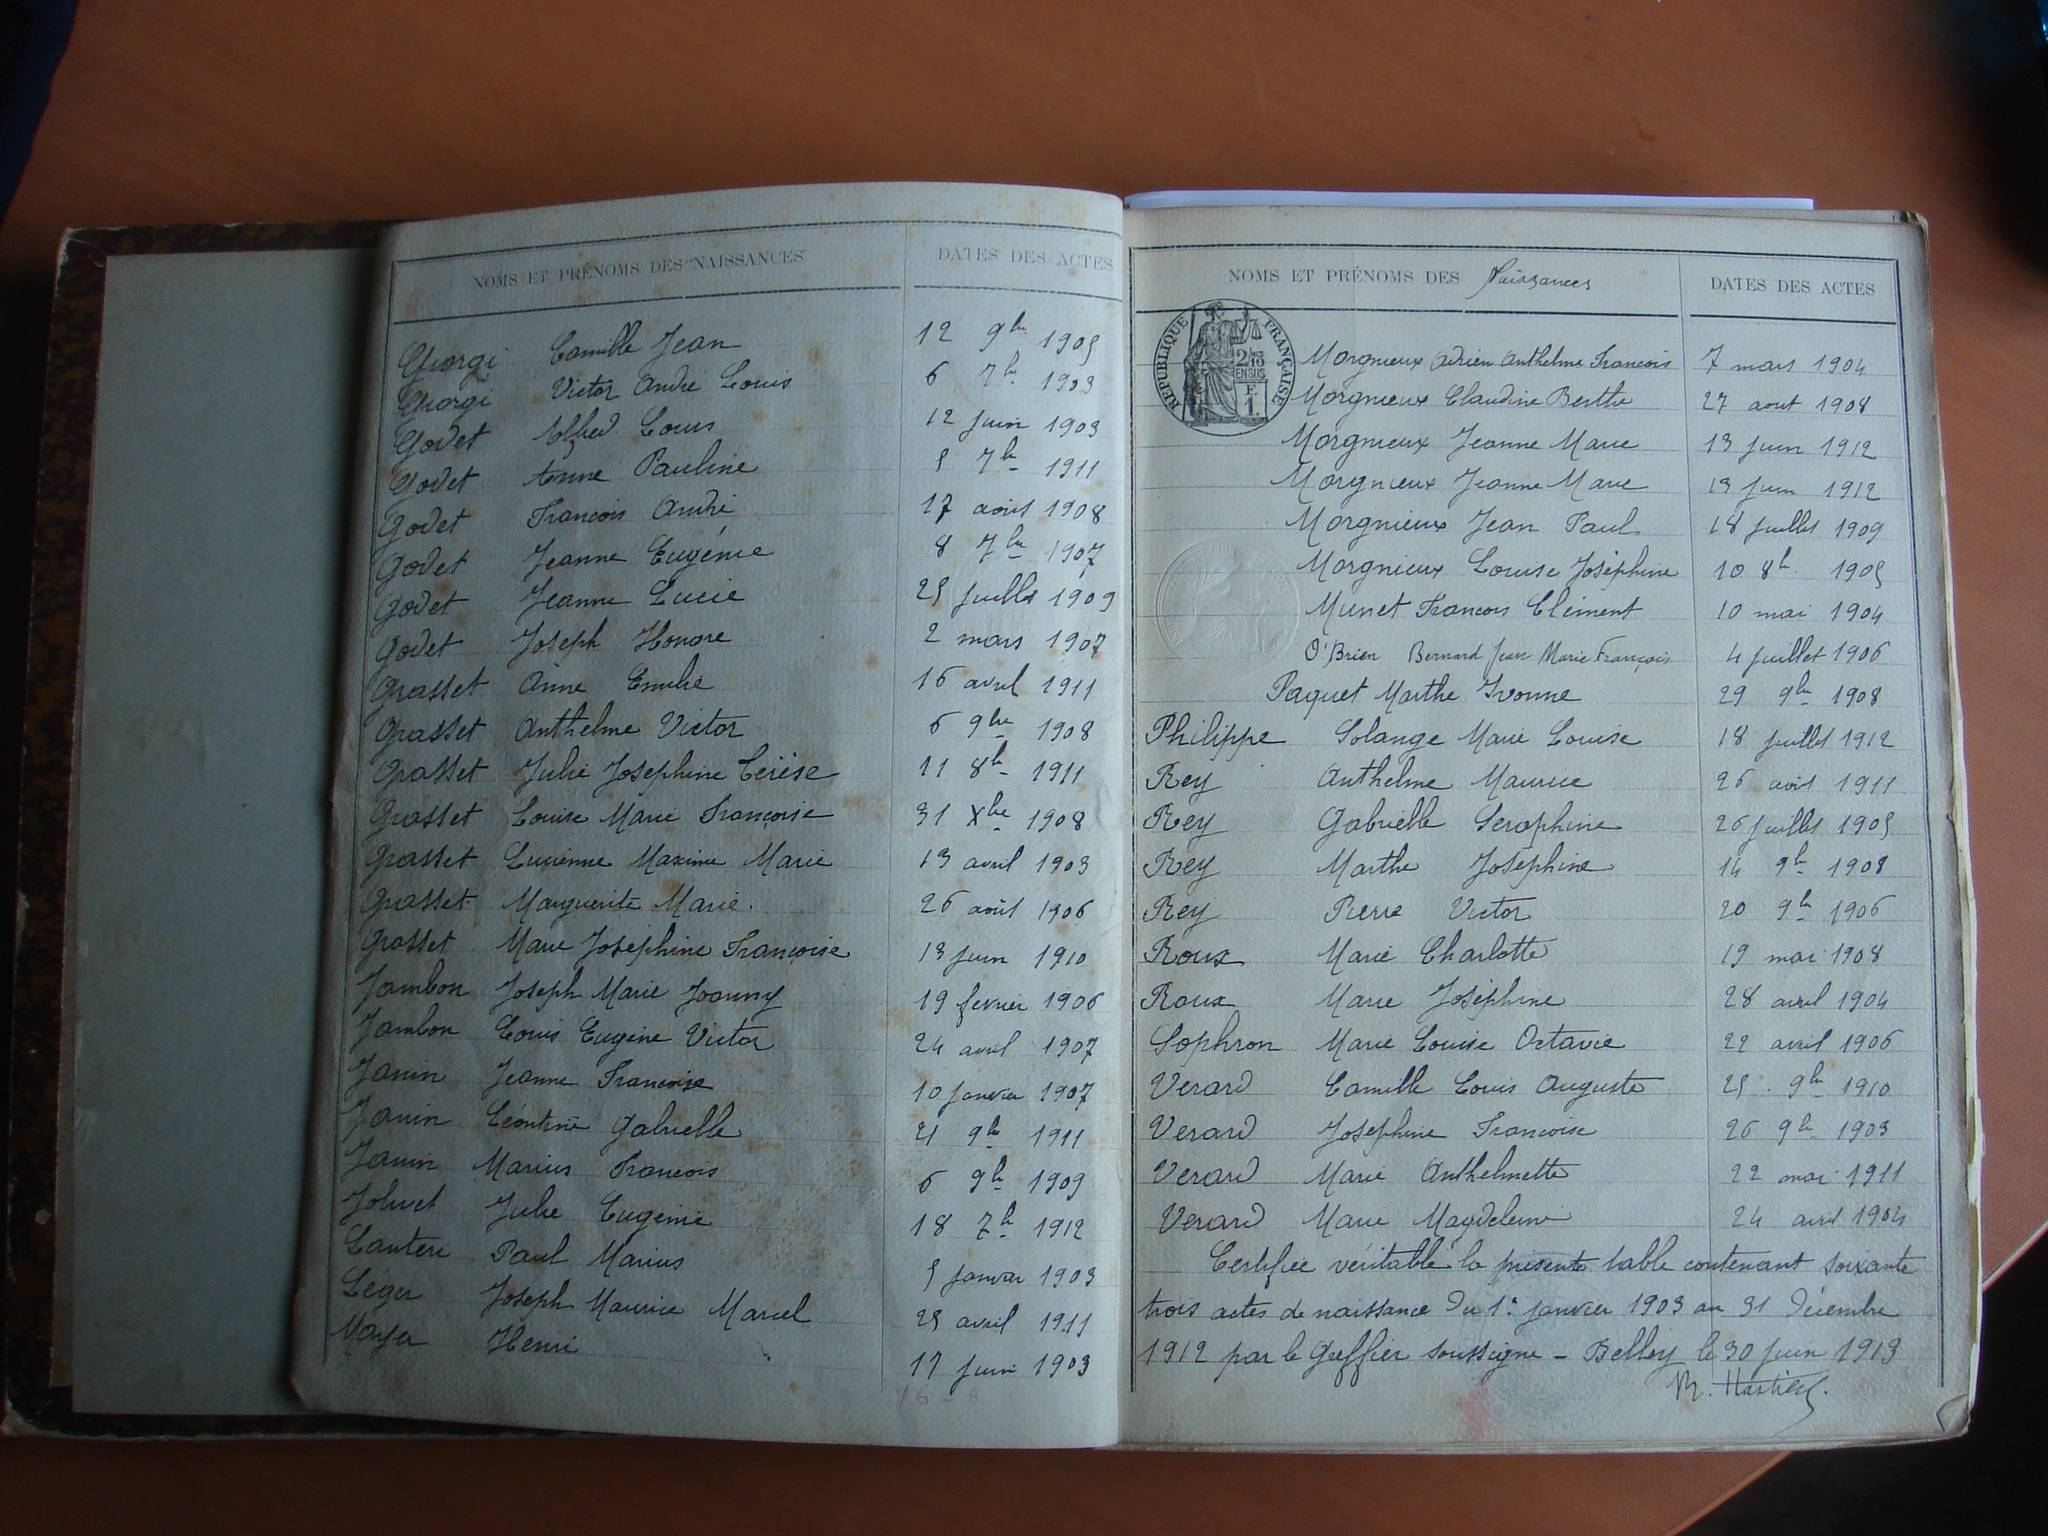 NOMS ET PRÉNOMS DES "NAISSANCES" DATES DES ACTES
Giorgi Camille Jean 12 9bre 1905
Giorgi Victor André Louis 6 7bre 1903
Godet Alfred Louis 12 juin 1903
Godet Anne Pauline 5 7bre 1911
Godet François André 17 avril 1908
Godet Jeanne Eugénie 8 7bre 1907
Godet Jeanne Lucie 25 juillet 1909
Godet Joseph Honoré 2 mars 1907
Grasset Anne Emilie 16 avril 1911
Grasset Anthelme Victor 6 9bre 1908
Grasset Julie Josephine Térèse 11 8bre 1911
Grasset Louise Marie Françoise 31 Xbre 1908
Grasset Lucienne Maxime Marie 13 avril 1903
Grasset Marguerite Marie. 26 août 1906
Grasset Marie Joséphine Françoise 13 juin 1910
Jambon Joseph Marie Joanny 19 février 1906
Jambon Louis Eugène Victor 24 avril 1907
Janin Jeanne Françoise 10 janvier 1907
Janin Léontine Gabrielle 21 9bre 1911
Janin Marius François 6 9bre 1909
Jolivet Julie Eugénie 18 7bre 1912
Lanteri Paul Marius 5 janvier 1903
Léger Joseph Maurice Marcel 25 avril 1911
Mayer Henri 17 juin 1903
NOMS ET PRÉNOMS DES Naissances DATES DES ACTES
RÉPUBLIQUE FRANÇAISE
2/10 EN SUS
F. 1.
Morgnieux Adrien Anthelme François 7 mars 1904
Morgnieux Claudine Berthe 27 aout 1908
Morgnieux Jeanne Marie 13 juin 1912
Morgnieux Jeanne Marie 13 juin 1912
Morgnieux Jean Paul 18 juillet 1909
Morgnieux Louise Joséphine 10 8bre 1905
Munet François Clément 10 mai 1904
O'Brien Bernard Jean Marie François 4 juillet 1906
Paquet Marthe Yvonne 29 9bre 1908
Philippe Solange Marie Louise 18 juillet 1912
Rey Anthelme Maurice 26 avril 1911
Rey Gabrielle Seraphine 26 juillet 1905
Rey Marthe Joséphine 14 9bre 1908
Rey Pierre Victor 20 9bre 1906
Roux Marie Charlotte 19 mai 1908
Roux Marie Joséphine 28 avril 1904
Sophron Marie Louise Octavie 22 avril 1906
Verard Camille Louis Auguste 25 9bre 1910
Verard Joséphine Françoise 26 9bre 1903
Verard Marie Anthelmette 22 mai 1911
Verard Marie Magdeleine 24 avril 1904
Certifiée véritable la présente table contenant soixante
trois actes de naissance du 1er janvier 1903 au 31 Décembre
1912 par le Greffier soussigné - Belley le 30 juin 1913